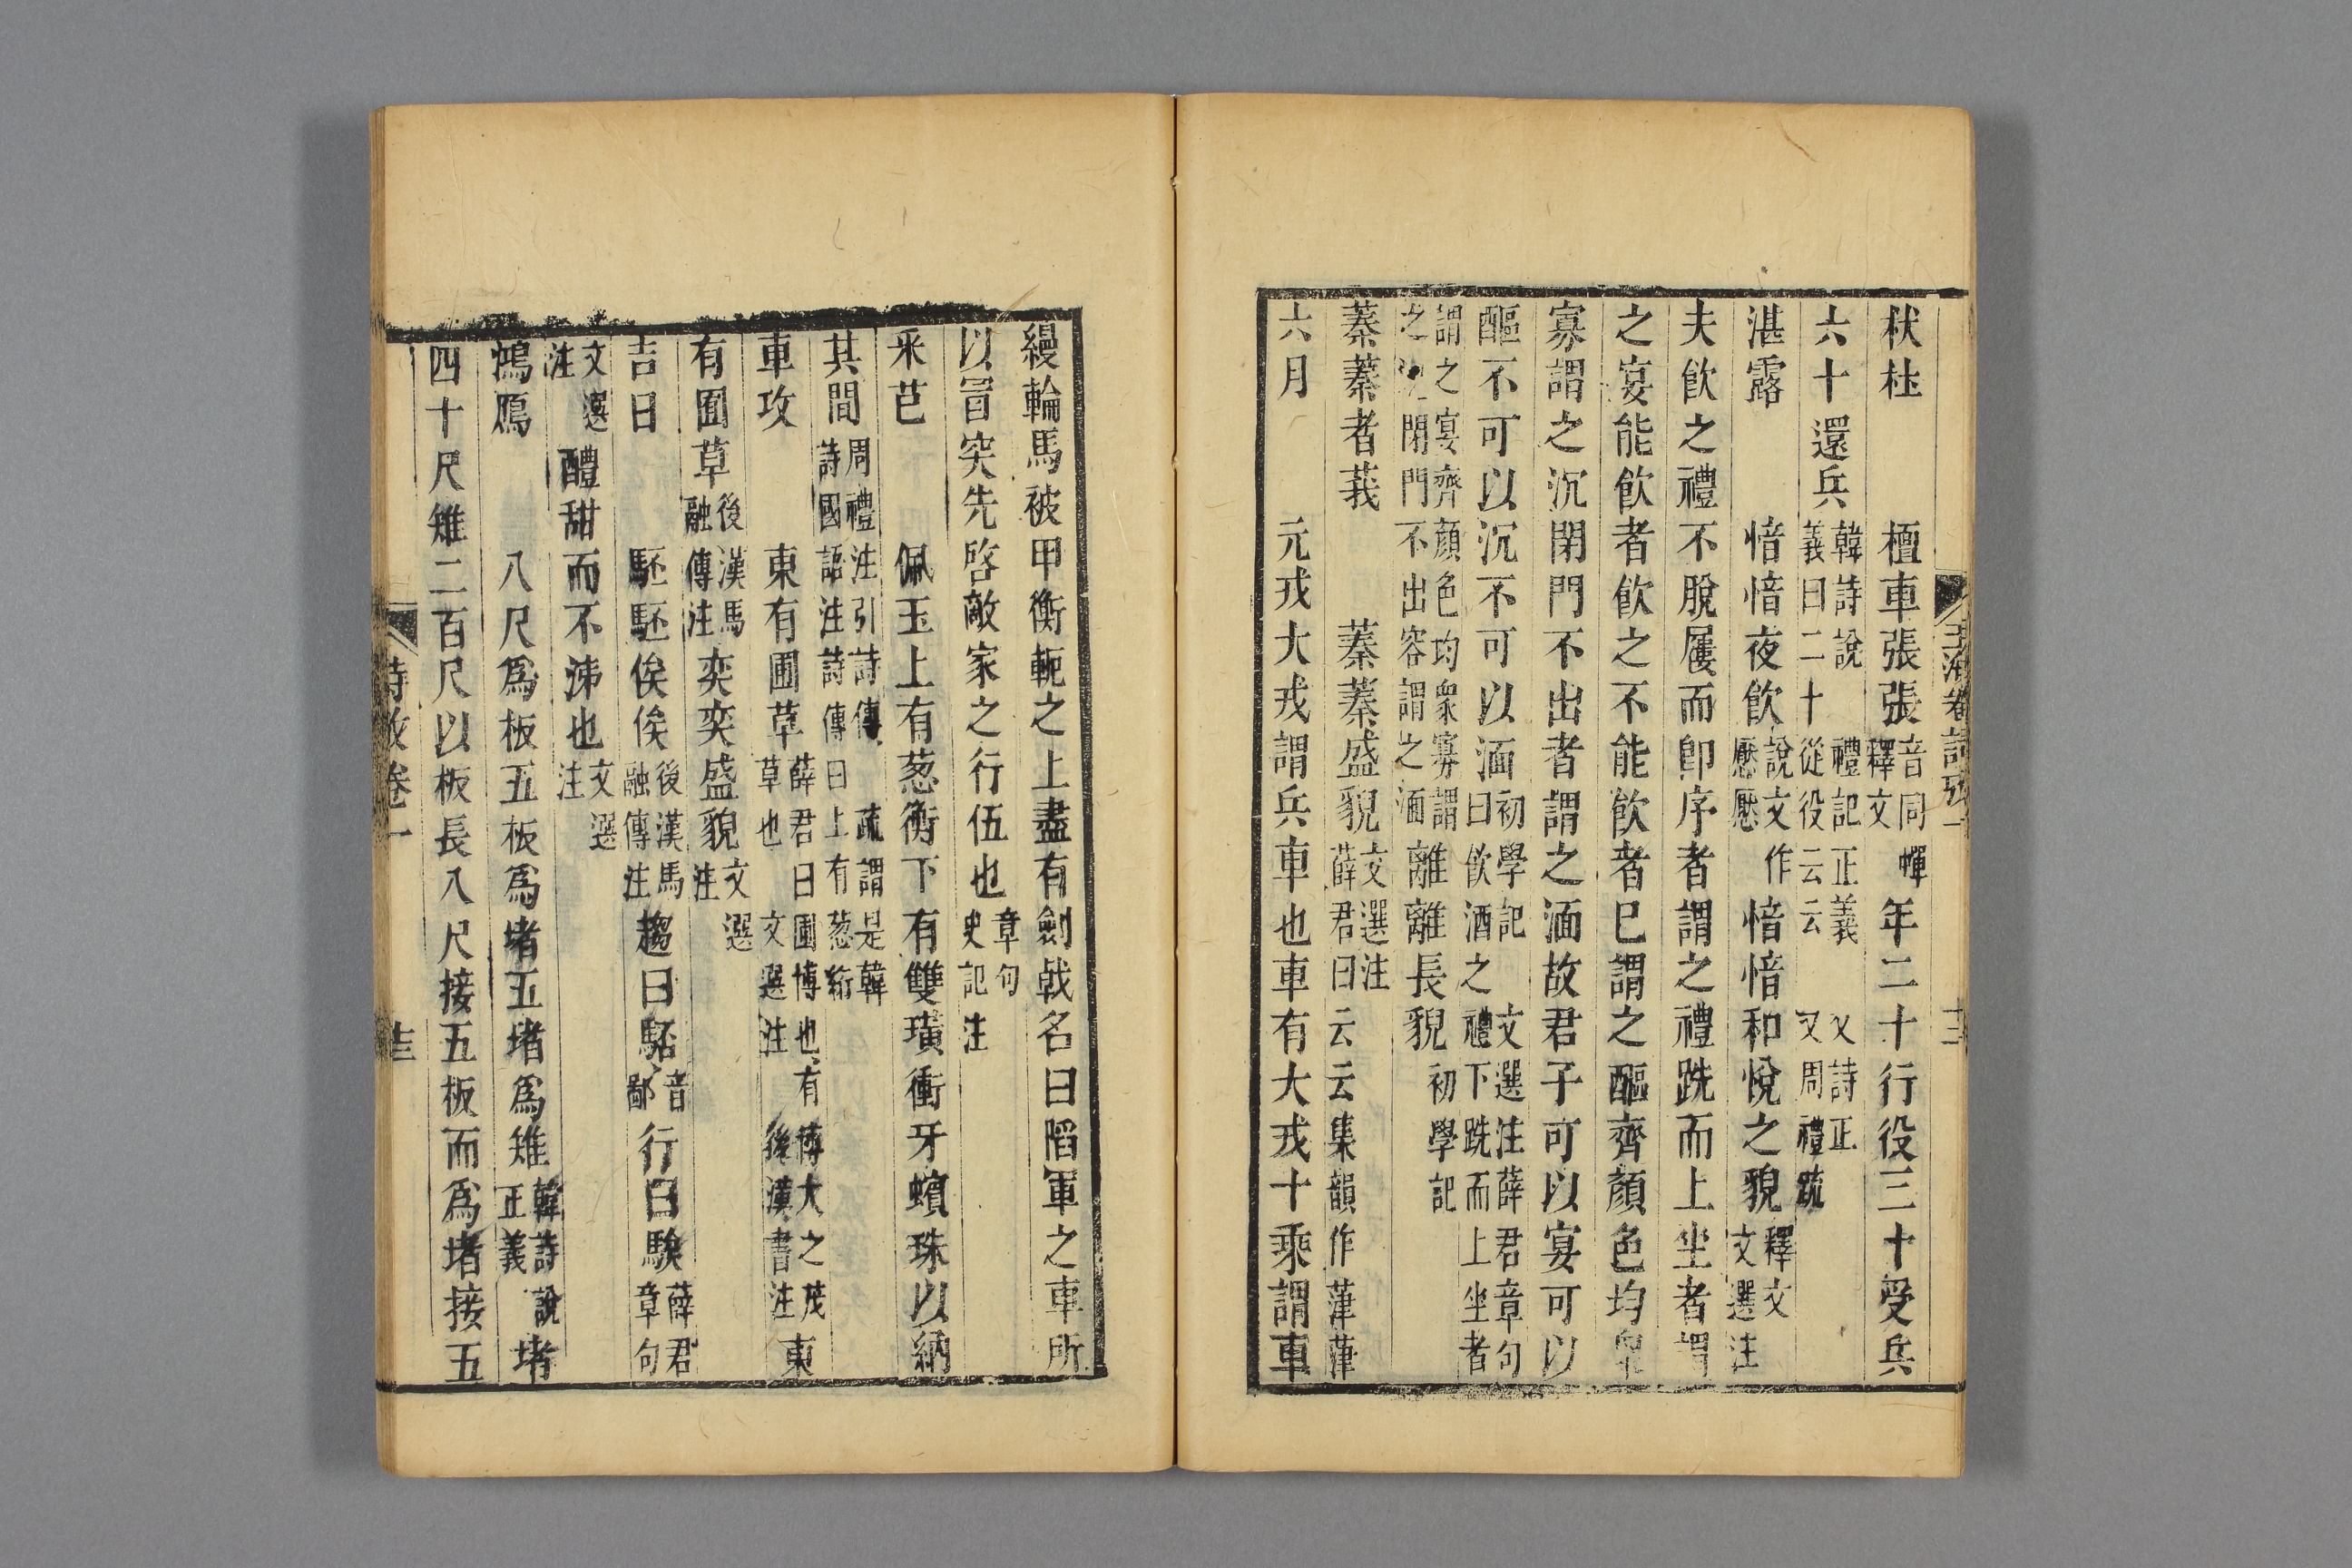 杕杜　檀車張張釋文音同幝年二十行役三十受兵
六十還兵韓詩說禮記正義又詩正義曰二十從役云云又周禮疏
湛露　愔愔夜飲說文作懕懕愔愔和悅之貌釋文文選注
夫飲之禮不脫屨而即序者謂之禮跣而上坐者謂
之宴能飲者飲之不能飲者已謂之醧齊顏色均衆
寡謂之沉閉門不出者謂之湎故君子可以宴可以
醧不可以沉不可以湎初學記文選注薛君章句曰飲酒之禮下跣而上坐者
謂之宴齊顏色均衆寡謂之沉閉門不出容謂之湎離離長貌初學記
蓁蓁者莪　蓁蓁盛貌文選注薛君曰云云集韻作葏葏
六月　元戎大戎謂兵車也車有大戎十乘謂車
玉海卷詩攷一
十三
縵輪馬被甲衡軛之上盡有劍戟名曰陷軍之車所
以冒突先啓敵家之行伍也章句史記注
采芑　佩玉上有葱衡下有雙璜衝牙蠙珠以納
其間周禮注引詩傳疏謂是韓詩國語注詩傳曰上有葱珩
車攻　東有圃草薛君曰圃博也有博大之茂草也文選注後漢書注東
有囿草後漢馬融傳注奕奕盛貌文選注
吉日　駓駓俟俟後漢馬融傳注趨曰駓音鄙行曰騃薛君章句
文選注醴甜而不泲也文選注
鴻鴈　八尺爲板五板爲堵五堵爲雉韓詩說正義堵
四十尺雉二百尺以板長八尺接五板而爲堵接五
詩攷卷一
十三